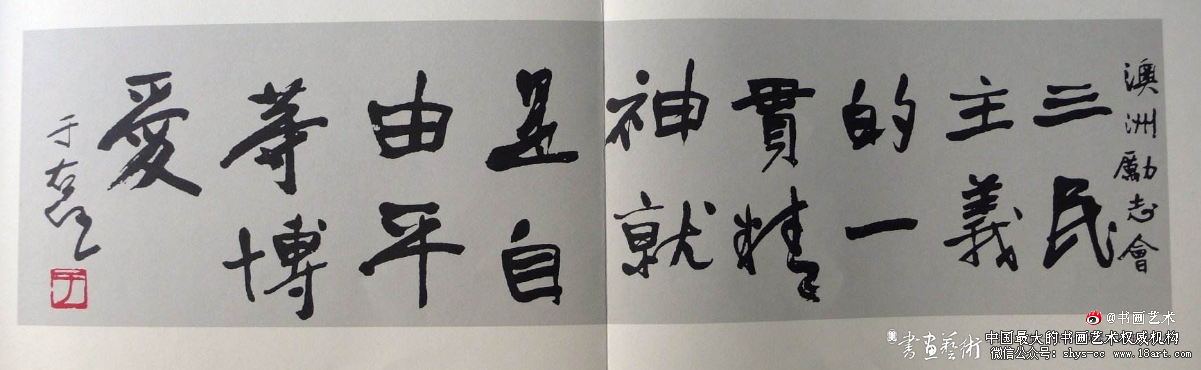 澳洲勵志會
三民
主義
的一
貫精
神就
是自
由平
等博
愛
于右任
于
@书画艺术
書畫藝術
中国最大的书画艺术权威机构
微信公众号：shys-cc www.18art.com